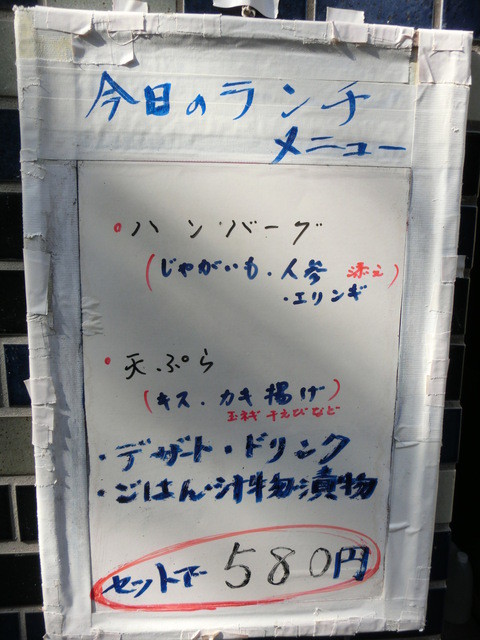 今日のランチ
メニュー
・ハンバーグ
(じゃがいも・人参 添え)
・エリンギ
・天ぷら
(キス・カキ揚げ)
玉ネギ 干えびなど
・デザート・ドリンク
・ごはん・汁物・漬物
セットで 580円